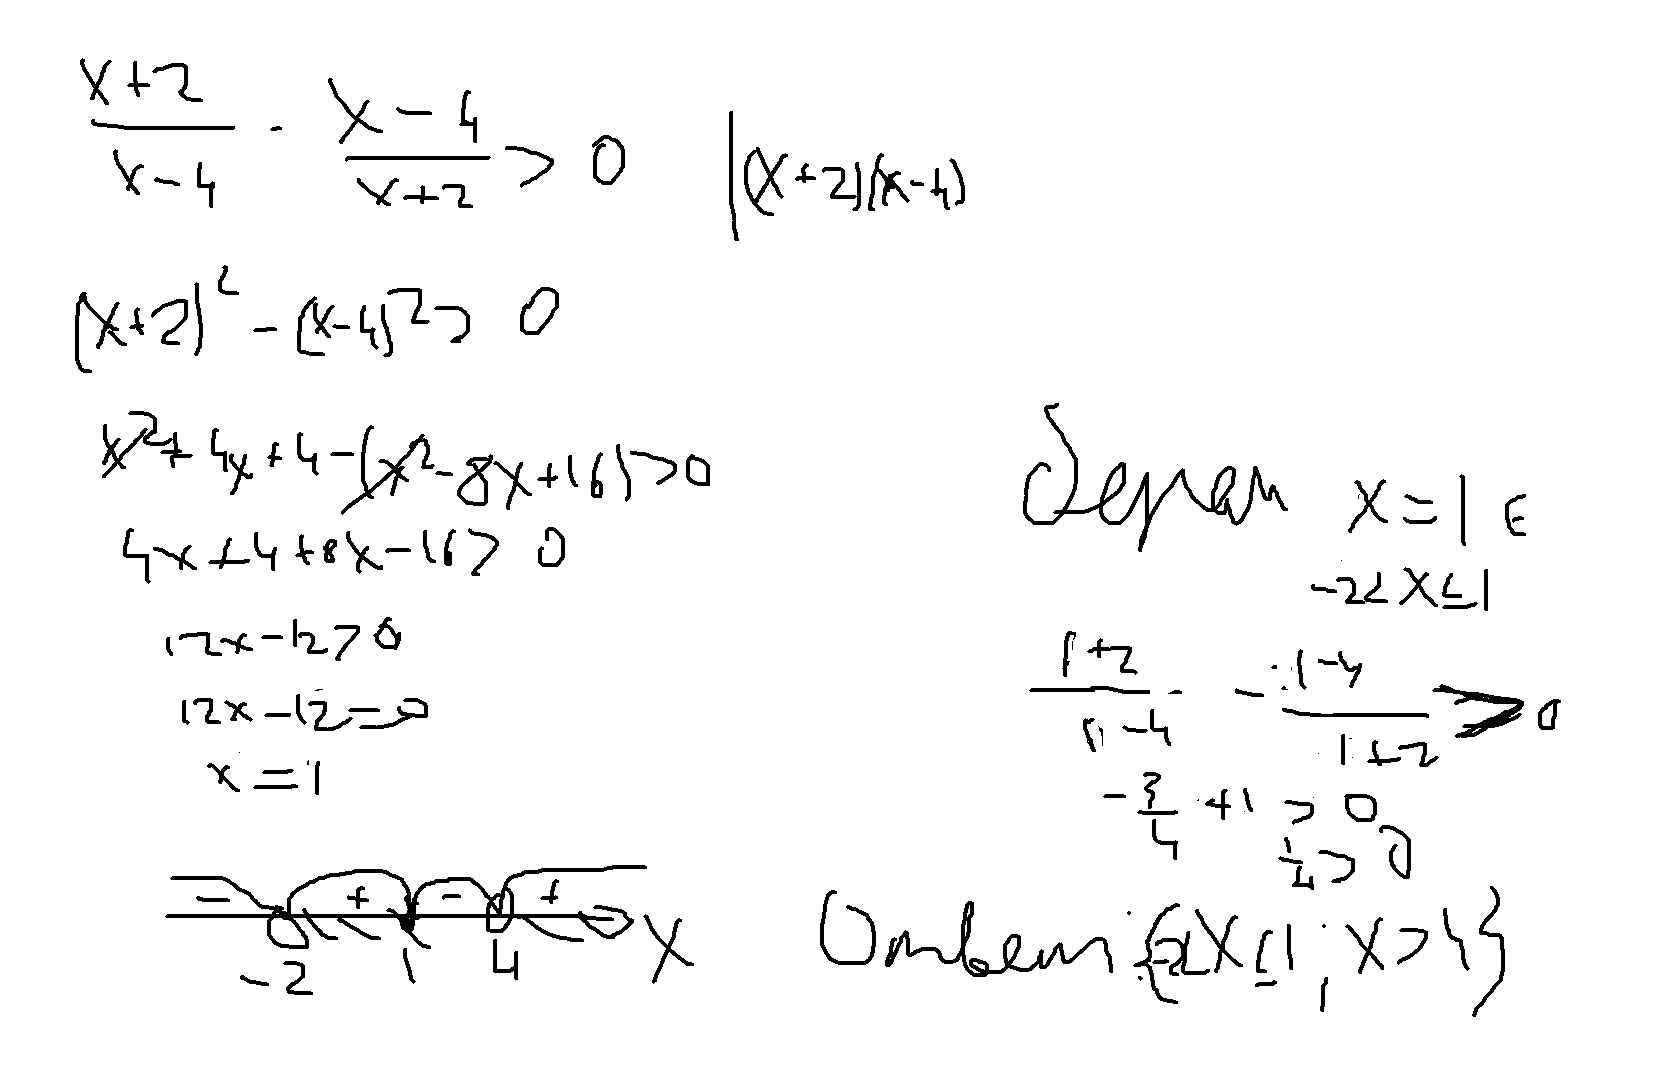 (x+2)/(x-4) - (x-4)/(x+2) > 0 |(x+2)(x-4)
(x+2)² - (x-4)² > 0
x² + 4x + 4 - (x² - 8x + 16) > 0
4x + 4 + 8x - 16 > 0
12x - 12 > 0
12x - 12 = 0
x = 1
- + - +
-2 1 4 X
Берем x = 1 ∈
-2 < x ≤ 1
(1+2)/(1-4) - (1-4)/(1+2) > 0
-3/4 + 1 > 0
1/4 > 0
Ответ: {-2<x≤1; x>4}